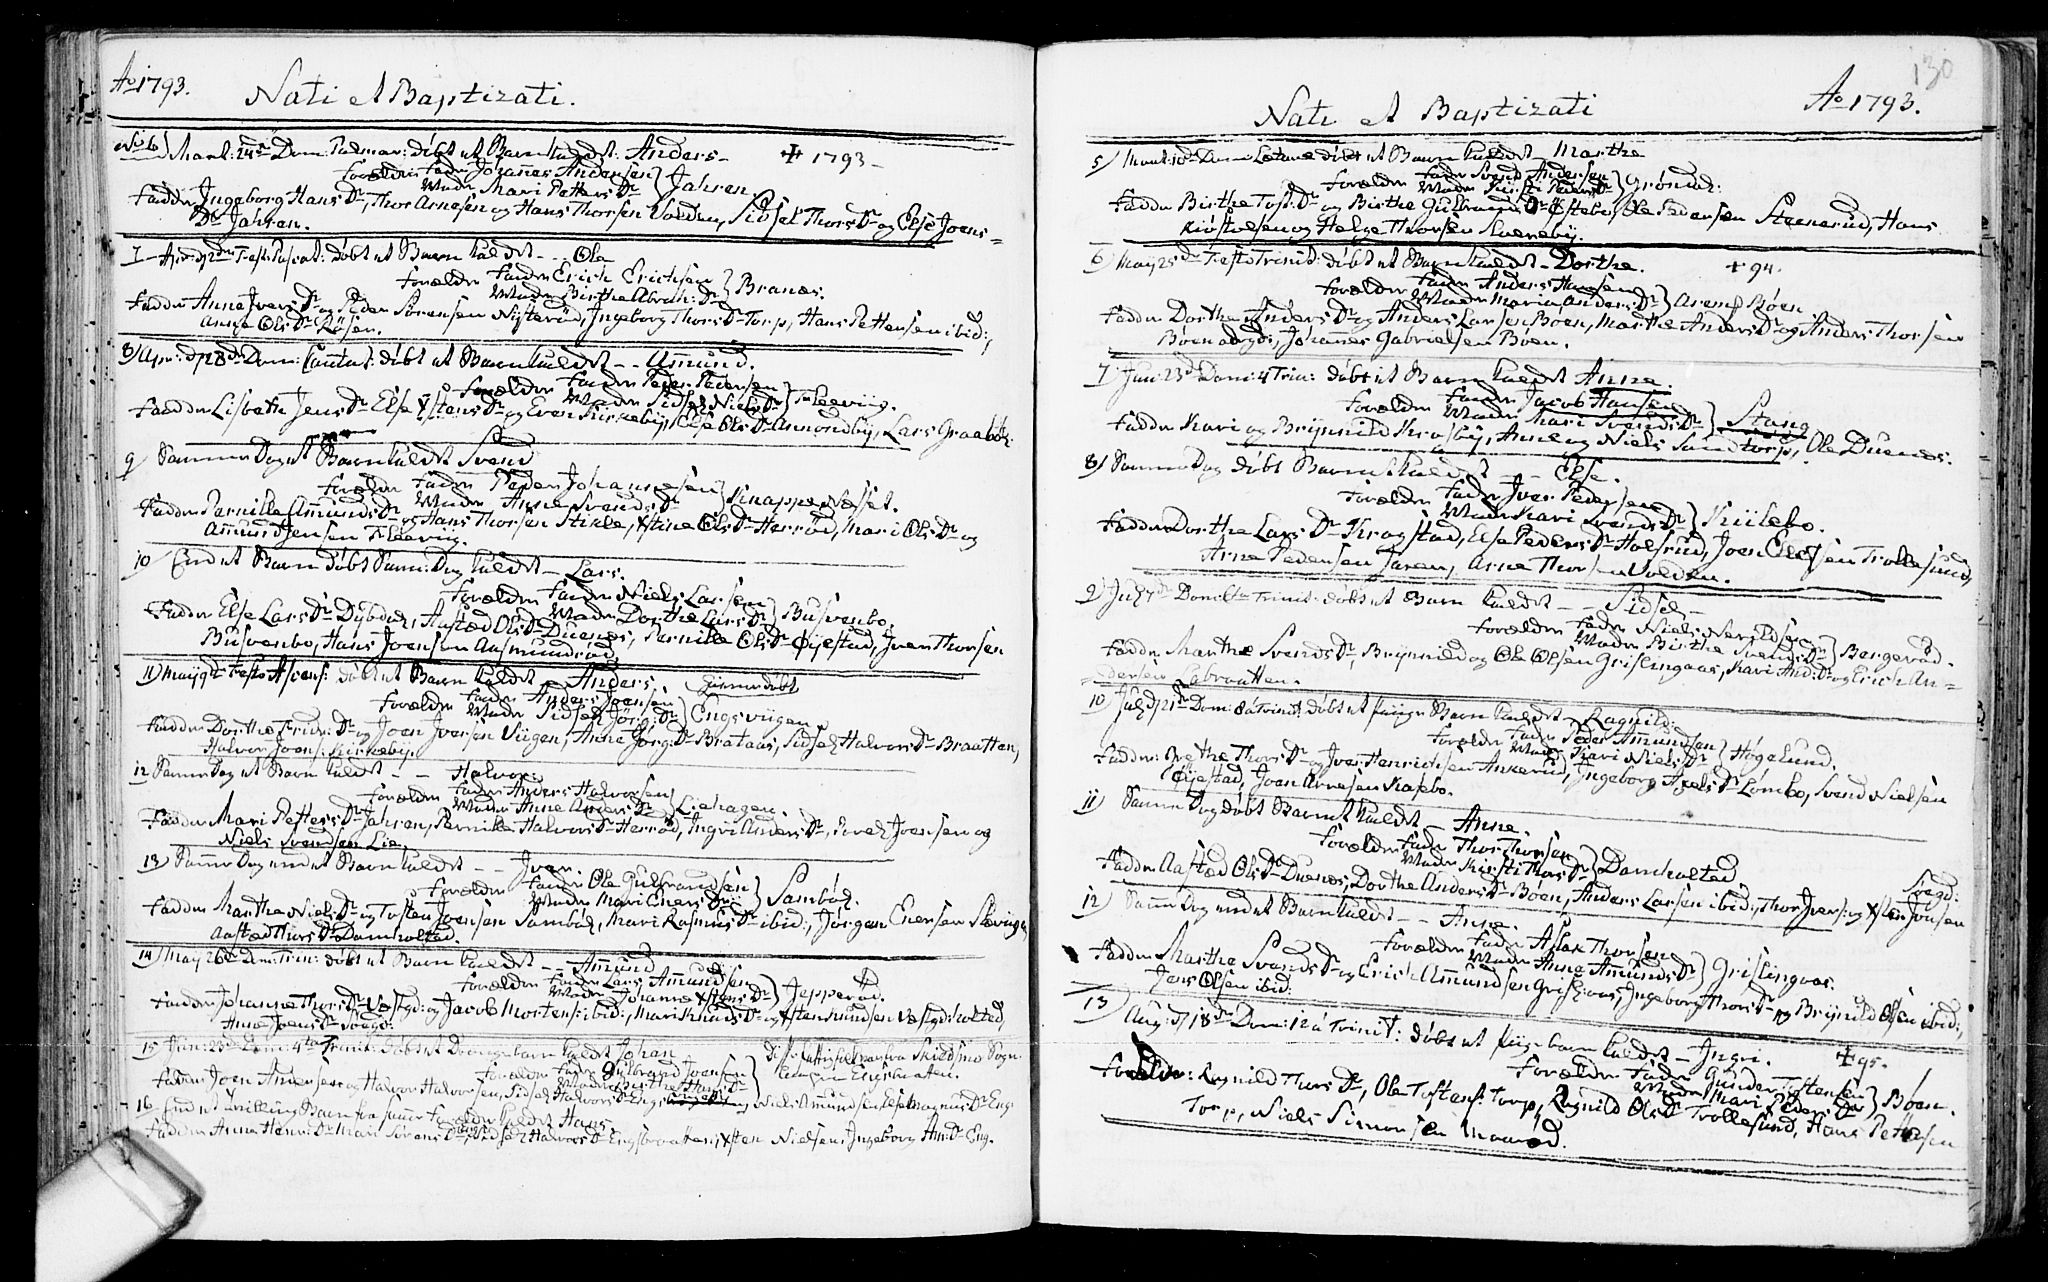 Ao 1793.
Nati et Baptizati.
No 6 Mart: 24de Dom: Palmar: döbt et Barn kaldet: Anders - ✝ 1793 -
Forældre Fader Johannes Andersen
Moder Mari Petters Dr } Jahren.
Fadder Ingeborg Hans Dr, Thor Arnesen og Hans Thorsen Volden, Sidsel Thors Dr og Else Joens
Dr Jahren.
7 Apr: Fest: Pascat: döbt et Barn kaldet - - Ola
Forældre Fader Erich Erichsen
Moder Birthe Abrah: Dr } Branæs.
Fadder Anne Ivers Dr og Peder Sörensen Nysteröd, Ingeborg Thors Dr Torp, Hans Pettersen ibid:,
Anne Ols Dr Röisen.
8 Apr: d 28de Dom: Cantat: döbt et Barn kaldet - - Amund.
Forældre Fader Peder Pedersen
Moder Sidsel Niels Dr } Fleeviig.
Fadder Lisbeth Jens Dr Else Dr og Even Kirkebÿ, Else Ols Dr Amondbÿ, Lars Graaböl:
9 Samme Dag et Barn kaldet Svend
Forældre Fader Peder Johannesen
Moder Anne Svends Dr } Knappe Næsset.
Fadder Pernille Amunds Dr og Hans Thorsen Stikle, Xstine Ols Dr Herröd, Mari Ols Dr og
Amund Jensen Fleeviig.
10 End et Barn döbt Samme Dag kaldet - Lars.
Forældre Fader Niels Larsen
Moder Dorthe Lars Dr } Busvenbo.
Fadder Else Lars Dr Dybdal, Aastæd Ols Dr Duenæs, Pernille Ols Dr Öyestad, Iver Thorsen
Busvenbo, Hans Joensen Aasmundröd.
11 Maÿ 9de Festo Ascens: döbt et Barn kaldet - Anders. hiemmedöbt
Forældre Fader Anders Joensen
Moder Sidsel Jörg: Dr } Engsviigen.
Fadder Dorthe Frid: Dr og Joen Iversen Viigen, Anne Jörg: Dr Brataas, Sidsel Halvors Dr Braatten,
Halvor Joens: Kirkebÿ.
12 Samme Dag et Barn kaldet - - Halvor.
Forældre Fader Anders Halvorsen
Moder Anne Anders Dr } Liehagen.
Fadder Mari Petters Dr Jahren, Pernille Halvors Dr Herröd, Ingri Anders Dr, Povel Joensen og
Niels Svendsen Lie.
13 Samme Dag end et Barn kaldet - - Iver.
Forældre Fader Ole Gulbrandsen
Moder Mari Eners Dr } Samböl.
Fadder Marthe Niels Dr og Tosten Joensen Samböl, Mari Rasmus Dr ibid:, Jörgen Enersen Skeviig,
Aastæd Thors Dr Damholted.
14 May 26de Dom: Trin: döbt et Barn kaldet - - Amund
Forældre Fader Lars Amundsen
Moder Johanne Xstens Dr } Jepperöd.
Fadder Johanne Thors Dr Væstgd: og Jacob Mortens: ibid:, Mari Knuds Dr og Xsten Knudsen Væstgd: holted,
Anne Joens Dr Svegd:
15 Jun: 23de Dom: 4ta Trinit: döbt et Drengebarn kaldet Johan
Forældre Fader Gulbrand Joensen
Moder Birthe Hans Dr } fra Skiedsmo Sogn.
Fadder Joen Andersen og Halvor Halvorsen, Sidsel Halvors Dr Engsbraatten, Niels Amundsen, Else Magnus Dr Eng
16 End et Tvilling Barn fra samme Forældre kaldet Hans.
Fadder Anne Henr: Dr Mari Sörens Dr, Sidsel Halvors Dr Engsbraatten, Xsten Nielsen, Ingeborg An: Dr Eng.
130
Nati et Baptizati
Ao 1793.
5 Mart: 10de Dom: Lætare döbt et Barn kaldet - Marthe
Forældre Fader Svend Andersen
Moder Kirsti Peders Dr } Grönæd:
Fadder Birthe Tost: Dr og Birthe Gulbrands Dr Östebÿ, Ole Pedersen Steenerud, Hans
Kiöstelsen og Helge Thorsen Sverebÿ.
6 May 25de Festo Trinit: döbt et Barn kaldet - Dorthe. + 94.
Forældre Fader Anders Hansen
Moder Maria Anders: Dr } Aremp Böen.
Fadder Dorthe Anders Dr og Anders Larsen Böen, Marthe Anders Dr og Anders Thorsen
Böen, Johanes Gabrielsen Boen.
7 Jun: 23de Dom: 4 Trin: döbt et Barn kaldet Anne.
Forældre Fader Jacob Hansen
Moder Kari Svends Dr } Stang
Fadder Kari og Brÿnnild Krosbÿ, Anne og Niels Sundtorp, Ole Duenæs.
8 Samme Dag döbt Barnet kaldet - - Else.
Forældre Fader Iver Pedersen
Moder Kari Svends Dr } Kiilebo.
Fadder Dorthe Lars Dr Krogstad, Else Peders Dr Holsrud, Joen Olsen Trollesund,
Arne Pedersen Jaren, Arne Thorsen Volden.
9 Julÿ 7de Dom: 6te Trinit: döbt et Barn kaldet - - Sidsel -
Forældre Fader Niels Nerildsen
Moder Birthe Svends Dr } Bergeröd.
Fadder Marthe Svends Dr, Brÿnnild og Ole Olsen Grislingaas, Mari And: Dr og Erich An=
dersen Labraatten.
10 Julÿ 21de Dom: 8 a Trinit: döbt et Piige Barn kaldet - Ragnild:
Forældre Fader Peder Amundsen
Moder Kari Niels Dr } Högelund.
Fadder: Grethe Thors Dr og Iver Henrichsen Ankerud, Ingeborg Axels Dr Lömbo, Svend Nielsen
Öyestad, Joen Arnesen Kasebo.
11 Samme Dag döbt Barnet kaldet - Anne.
Forældre Fader Thor Thorsen
Moder Kirsti Thors Dr } Damholted
Fadder Aastæd Ols Dr Duenæs, Dorthe Anders Dr Böen, Anders Larsen ibid:, Thor Ivers: og Xsten Joensen Svegd:
12 Samme Dag end et Barn kaldet - - Anne.
Forældre Fader Aslak Thorsen
Moder Anne Amunds Dr } Grislingaas.
Fadder Marthe Svends Dr og Erich Amundsen Grisl: aas, Ingeborg Thors Dr og Brÿnild Olsen ibid:,
Jens Olsen ibid:
13 Aug: d 18de Dom: 12 a Trinit: döbt et Piige barn kaldet - Ingri. ✝ 95.
Forældre Fader Gunder Tostensen
Moder Mari Peders Dr } Böen.
Fadder: Ragnild Thors Dr, Ole Tostens: Torp, Ragnild Ols Dr Trollesund, Hans Pettersen
Torp, Niels Simonsen Maaröd.